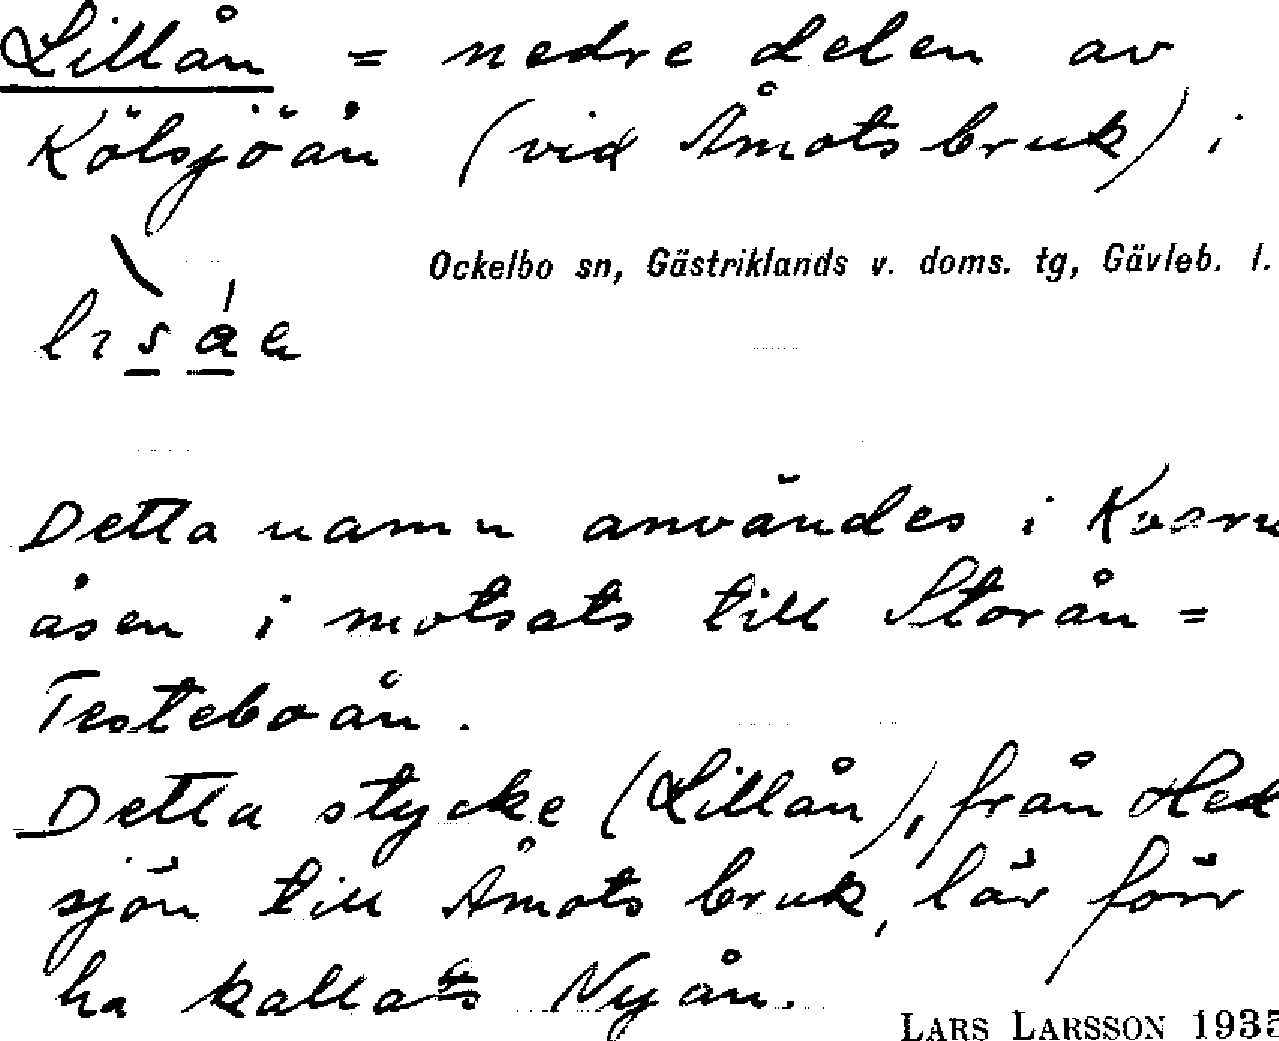 Lillån = nedre delen av
Kölsjöån (vid Åmots bruk) i
Ockelbo sn, Gästriklands v. doms. tg, Gävleb. l.
Detta namn användes i Kvarn
åsen i motsats till Storån =
Testeboån.
Detta stycke (Lillån), från Hed
sjön till Åmots bruk, lär förr
ha kallats Nyån.
LARS LARSSON 1935